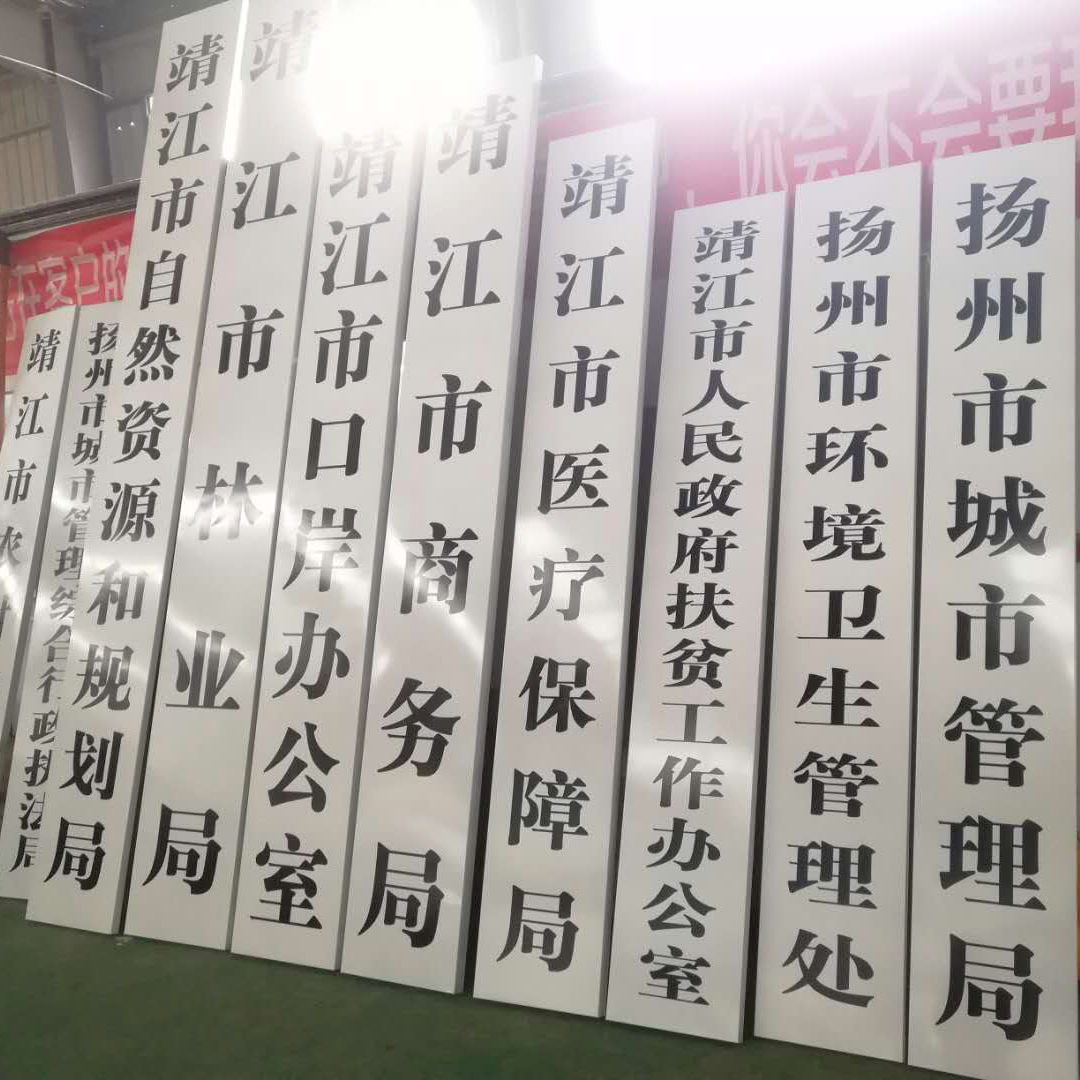 你会不会要求
在客户的
靖江市农村
扬州市城市管理综合行政执法局
靖江市自然资源和规划局
靖江市林业局
靖江市口岸办公室
靖江市商务局
靖江市医疗保障局
靖江市人民政府扶贫工作办公室
扬州市环境卫生管理处
扬州市城市管理局